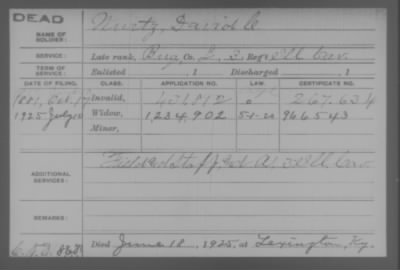 DEAD
NAME OF SOLDIER: Nurtz, David C
SERVICE: Late rank, Bug, Co. L, 3 Reg't Ill Cav.
TERM OF SERVICE: Enlisted , 1 Discharged , 1
DATE OF FILING. CLASS. APPLICATION NO. LAW. CERTIFICATE NO.
1881, Invalid, 431812 267.634
1925 July Widow, 1,234,902 5-1-20 966543
Minor,
ADDITIONAL SERVICES: Field and Staff 3 Ill Cav
REMARKS:
Died June 18, 1925, at Lexington, Ky.